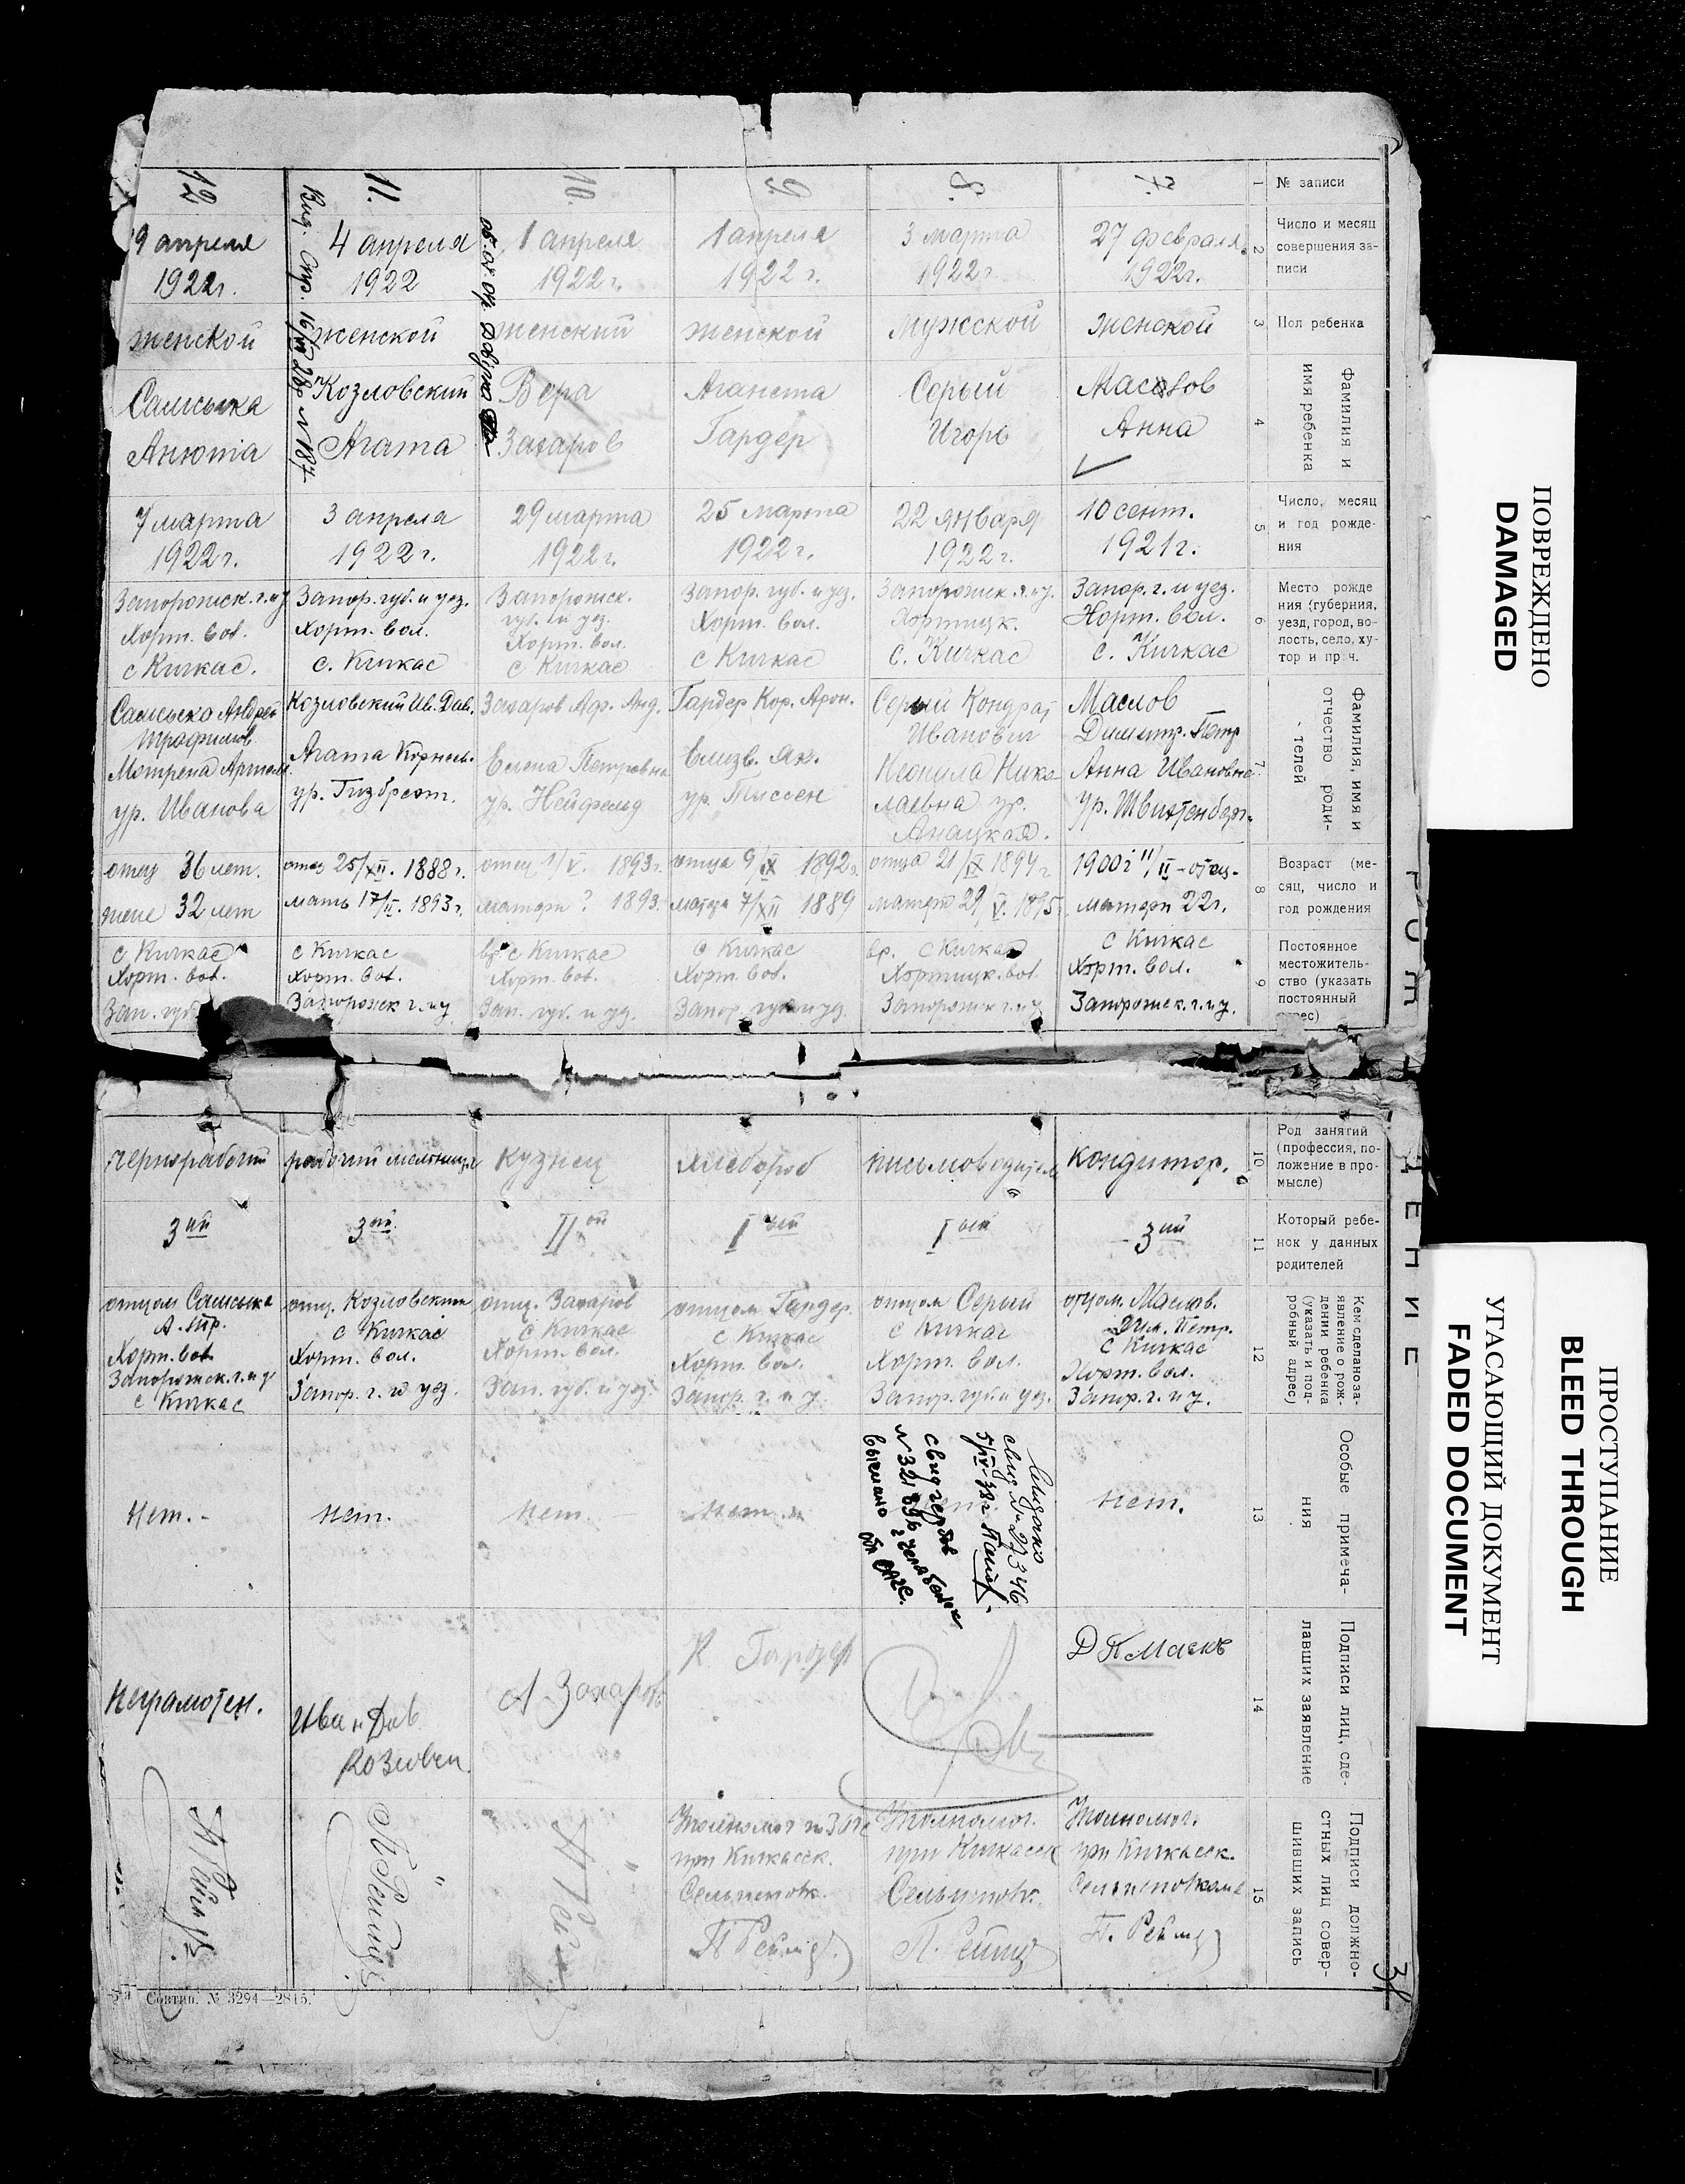 № записи
1
7.
8.
9.
10.
11.
12.
Число и месяц
совершения за-
писи
2
27 февраля
1922г.
3 марта
1922г.
1 апреля
1922 г.
1 апреля
1922 г.
4 апреля
1922
9 апреля
1922г.
Пол ребенка
3
женской
мужской
женской
женский
женской
женской
Фамилия и
имя ребенка
4
Анна
Серый
Игорь
Аганета
Гардер
Вера
Захаров
Козловский
Агата
Анюта
Число, месяц
и год рожде-
ния
5
10 сент.
1921г.
22 января
1922г.
25 марта
1922 г.
29 марта
1922г.
3 апреля
1922г.
7 марта
1922г.
Место рожде
ния (губерния,
уезд, город, во-
лость, село, ху-
тор и проч.
6
Запор. г. и уез.
Хорт. вол.
с. Кичкас
Запорожск. г. и у.
Хортицк.
с. Кичкас
Запор. губ. и уез.
Хорт. вол.
с Кичкас
Запорожск.
губ. и уез.
Хорт. вол.
с Кичкас
Запор. губ. и уез.
Хорт. вол.
с. Кичкас
Запорожск. г. и у
Хорт. вол.
с Кичкас.
Фамилия, имя и
отчество роди-
телей
7
Маслов
Димитр. Петр
Анна Ивановна
Серый Кондрат
Иванович
Неонила Нико
лаевна ур.
Гардер Кор. Арон.
Елизв. Як.
ур. Тиссен
Захаров Аф. Анд.
Елена Петровна
ур. Нейфельд
Козловский Ив. Дав.
Агата Корнел.
ур. Гизбрехт.
Андрей
Трофимов
ур. Иванова
Возраст (ме-
сяц, число и
год рождения
8
1900г 11/II - отец.
матери 22г.
отца 21/IX 1894г
матери 29/V. 1895г.
отца 9/IX 1892г.
матери 7/XII 1889
отец 1/V. 1893г.
матери ? 1893.
отец 25/XII. 1888г.
мать 17/II. 1893г.
отец 36 лет.
жене 32 лет
Постоянное
местожитель-
ство (указать
постоянный
адрес)
9
с Кичкас
Хорт. вол.
Запорожск. г. и у.
вр. с Кичкас
Хортицк. вол.
Запорожск г. и у
с Кичкас
Хорт. вол.
Запор. губ и уз.
вр. с Кичкас
Хорт. вол.
Зап. губ. и уз.
с Кичкас
Хорт. вол.
Запорожск г. и у
с Кичкас
Хорт. вол.
Зап. губ
Род занятий
(профессия, по-
ложение в про-
мысле)
10
Кондитор.
письмоводитель
хлебороб
кузнец
рабочий мельницы
чернорабочий
Который ребе-
нок у данных
родителей
11
3ий
Iый
Iый
IIой
3ий
3ий
Кем сделано за-
явление о рож-
дении ребенка
(указать и под-
робный адрес)
12
отцом. Маслов.
Дим. Петр.
с Кичкас
Хорт. вол.
Запор. г. и у.
отцом Серый
с Кичкас
Хорт. вол.
Запор. губ и уез.
отцом Гардер.
с Кичкас
Хорт. вол.
Запор. г. и у.
отц. Захаров
с Кичкас
Хорт. вол.
Зап. губ. и уез.
отц. Козловским
с Кичкас
Хорт. вол.
Запор. г. и уез.
отцом
А. Тр.
Хорт. вол
Запорожск. г. и у
с Кичкас
Особые примеча-
ния
13
нет.
нет.
нет.
нет.
нет.
Подписи лиц, сде-
лавших заявление
14
К. Гардер
А. Захаров
Иван Дав.
неграмотен.
Подписи должно-
стных лиц совер-
шивших запись
15
Уполномоч.
при Кичкасск.
П. Реймер
Уполномоч.
при Кичкасск
П. Реймер
при Кичкасск.
П Реймер
П. Реймер
38
Совтип. № 3294—2815.
ПОВРЕЖДЕНО
DAMAGED
ПРОСТУПАНИЕ
BLEED THROUGH
УГАСАЮЩИЙ ДОКУМЕНТ
FADED DOCUMENT